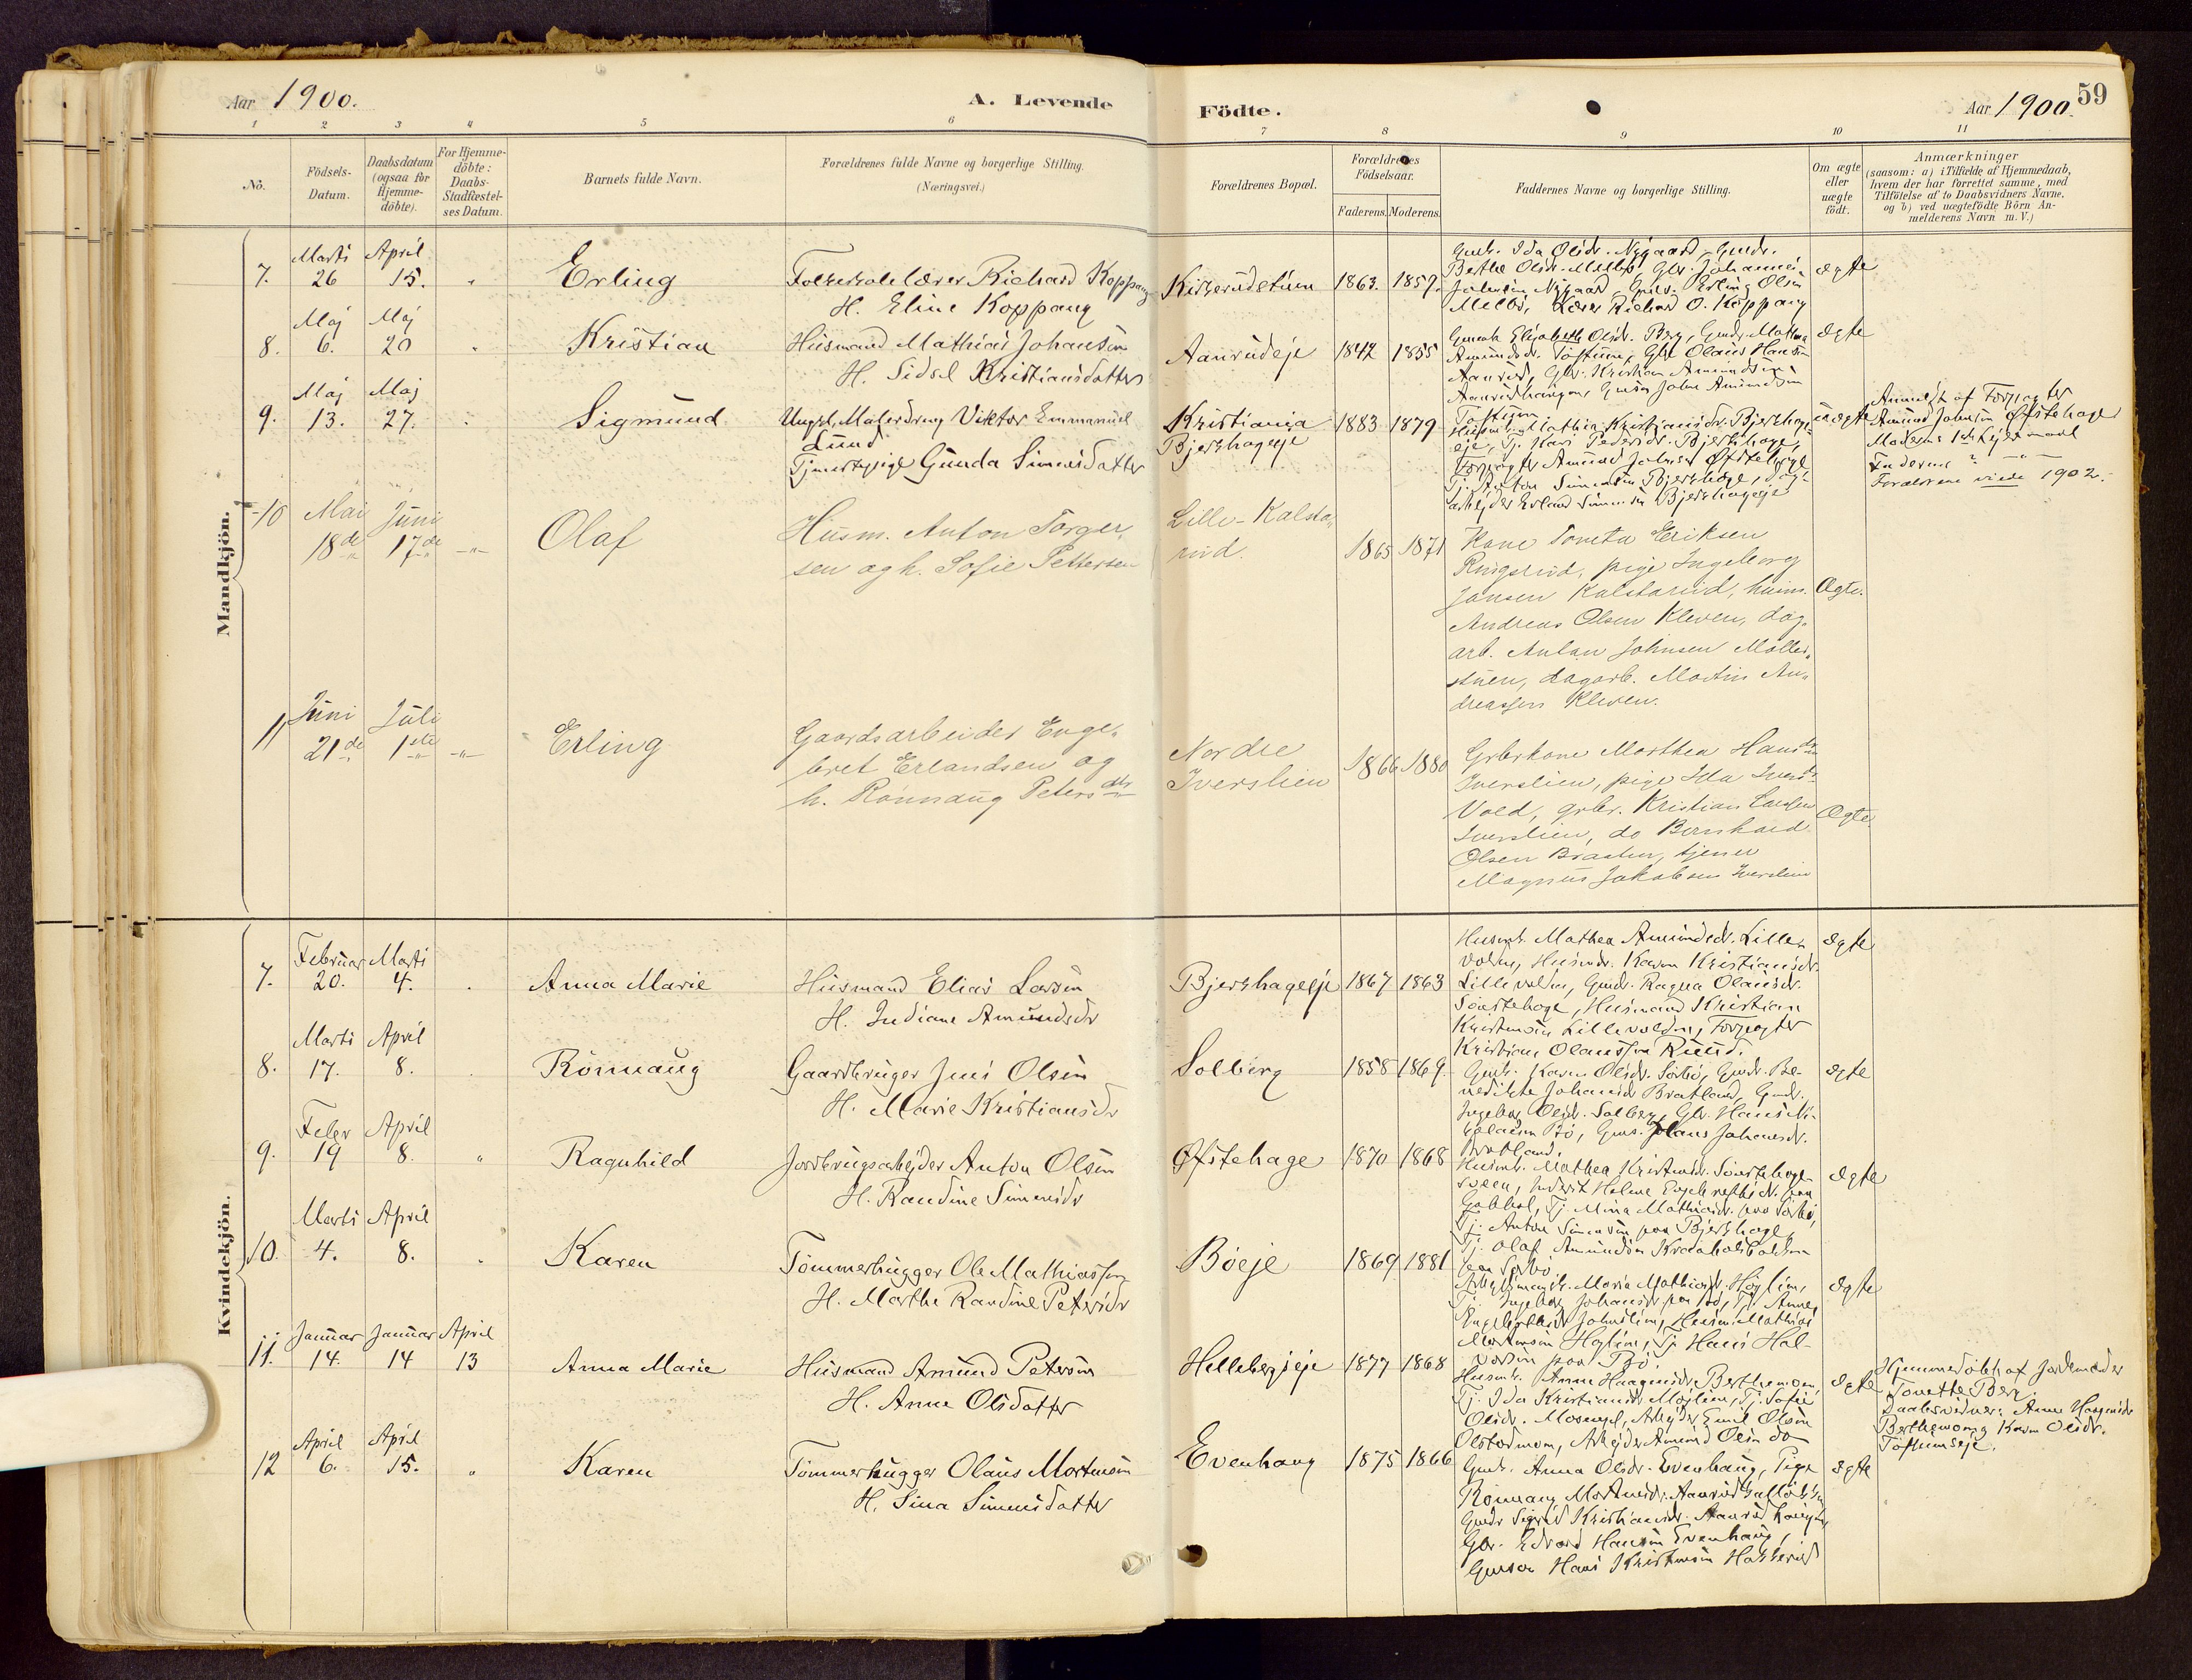 Aar 1900.
A. Levende
Födte.
Aar 1900.
59
1 2 3 4 5 6 7 8 9 10 11
No.
Födsels-Datum.
Daabsdatum (ogsaa for Hjemme-döbte).
For Hjemme-döbte: Daabs-Stadfæstel-ses Datum.
Barnets fulde Navn.
Forældrenes fulde Navne og borgerlige Stilling.
(Næringsvei.)
Forældrenes Bopæl.
Forældrenes Födselsaar.
Faderens. Moderens.
Faddernes Navne og borgerlige Stilling.
Om ægte eller uægte födt.
Anmærkninger
(saasom: a) i Tilfælde af Hjemmedaab,
hvem der har forrettet samme, med
Tilföielse af to Daabsvidners Navne,
og b) ved uægtefödte Börn An-
melderens Navn m. V.)
Mandkjön.
7. Marts 26 April 15. " Erling
Folkeskolelærer Richard Koppang
H. Eline Koppang
Kirkerudstuen 1863. 1859.
Gmdr. Ida Olsdr. Nygaard, Gmdr.
Berthe Olsdr. Melbö, Gbr. Johannes
Johnsen Nygaard, Gmds. Erling Olsen
Melbö, Lærer Richard O. Koppang
ægte
8. Maj 6. Maj 20 " Kristian
Husmand Mathias Johansen
H. Sidsel Kristiansdatter
Aanrudeje 1842 1855
Gmk. Elisabeth Olsdr. Berg, Gmdr. Mathea
Amundsdr. Töftum, Gbr. Olaus Hansen
Aanrud, Gbr. Kristian Amundsen
Aanrudhaugen, Gmsøn Johan Amundsen
Töftum
ægte
9. Maj 13. Maj 27. " Sigmund
Ungk. Malerdreng Viktor Emmanuel
Lund
Tjenestepige Gunda Simensdatter
Kristiania
Bjerkhageeje
1883 1879
Husmk. Mathea Kristiansdr. Bjerkhage-
eje, Tj. Kari Pedersdr. Bjerkhage,
Forpagter Amund Johnsen Øfstehage
Tj. Anton Simensen Bjerkhage, Dag-
arbejder Erland Simensen Bjerkhageeje
uægte
Anmeldt af Forpagter
Amund Johnsen Øfstehage
Moderens 1ste Lejermaal
Faderens ? -"-
Forældrene viede 1902.
10 Mai 18de Juni 17de -"- Olaf
Husm. Anton Torger-
sen og h. Sofie Pettersen
Lille-Kalsta-
rud.
1865 1871
Kone Tonetta Eriksen
Ringsrud, pige Ingeborg
Jansen Kalstarud, husm.
Andreas Olsen Kleven, dag-
arb. Anton Johnsen Möller-
stuen, dagarb. Martin An-
dreassen Kleven.
Ægte.
11 Juni 21de Juli 1ste -"- Erling
Gaardsarbeider Enge-
bret Erlandsen og
h. Rønnaug Petersdtr
Nordre
Iverslien
1866 1880
Grbrkone Marthea Hansdtr
Iverslien, pige Ida Iversdtr
Vold, grbr. Kristian Larsen
Iverslien, do Bernhard
Olsen Braaten, tjener
Magnus Jakobsen Iverslien
Ægte.
Kvindekjön.
7. Februar 20. Marts 4. " Anna Marie
Husmand Elias Larsen
H. Indiane Amundsdr
Bjerkhageeje 1867 1863
Husmk. Mathea Amundsdr. Lille-
volden, Husmdr. Karen Kristiansdr.
Lillevolden, Gmdr. Ragna Olausdr.
Sönstehage, Husmand Kristian
Kristensen Lillevolden, Forpagter
Kristian Olaussen Ruud.
ægte
8. Marts 17. April 8. " Rönnaug
Gaardbruger Jens Olsen
H. Marie Kristiansdr
Solberg 1858 1869.
Gmk. Karen Olsdr. Sörbö, Gmdr. Be-
nedikte Johansdr Bratland, Gmdr.
Ingebor Olsdr. Solberg, Gbr. Hans Ni-
kolaisen Bö, Gms. Olaus Johansen
Bratland.
ægte
9. Febr 19 April 8. " Ragnhild
Jordbrugsarbejder Anton Olsen
H. Randine Simensdr
Øfstehage 1870 1868
Husmk. Mathea Kristensdr. Sönstehage-
sveen, Inderst Helene Engebretsdr. paa
Gubbel, Tj. Mina Mathiasdr. paa Sörbö,
Tj. Anton Simensen paa Bjerkhage,
Tj. Olaf Amundsen
paa Sörbö
ægte
10. Marts 4. April 8. " Karen
Tömmerhugger Ole Mathiassen
H. Marthe Randine Petersdr
Böeje 1869 1881
Arbejdsmandsk. Maria Mathiasdr. Höglien,
Tj. Ingeborg Johansdr paa Bö, Tj. Anne
Engebretsdr Johnslien, Husm. Mathias
Mortensen Höglien, Tj. Hans Hal-
vorsen paa Bö.
ægte
11. Januar 14. Januar 14 April 13 Anna Marie
Husmand Amund Petersen
H. Anne Olsdatter
Hellebergseje 1877 1868
Husmk. Anne Haagensdr Berthemoen,
Tj. Ida Kristiansdr Möjlien, Tj. Sofie
Olsdr. Mosengel, Arbejder Emil Olsen
Olstadmoen, Arbejder Amund Olsen do
ægte
Hjemmedöbt af Jordemoder
Tonette Berg.
Daabsvidner: Anne Haagensdr
Berthemoen og Karen Olsdr.
Töftumseje.
12 April 6. April 15. " Karen
Tömmerhugger Olaus Mortensen
H. Sina Simensdatter
Evenhaug 1875 1866
Gmk. Anna Olsdr. Evenhaug, Pige
Rönnaug Mortensdr. Aanrud
Gmdr Sigrid Kristiansdr. Aanrud
Gbr. Edvard Hansen Evenhaug,
Gmsøn Hans Kristensen
ægte